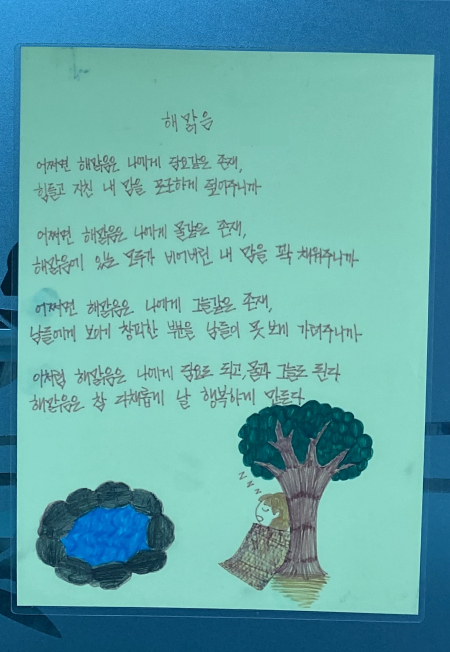 해맑음
어쩌면 해맑음은 나에게 담요같은 존재,
힘들고 지친 내 맘을 포근하게 덮어주니까
어쩌면 해맑음은 나에게 물같은 존재,
해맑음에 있는 모두가 비어버린 내 맘을 꽉 채워주니까
어쩌면 해맑음은 나에게 그늘같은 존재,
남들에게 보이게 창피한 부분을 남들이 못 보게 가려주니까
이처럼 해맑음은 나에게 담요도 되고, 물과 그늘도 된다
해맑음은 참 다채롭게 날 행복하게 만든다
z z z